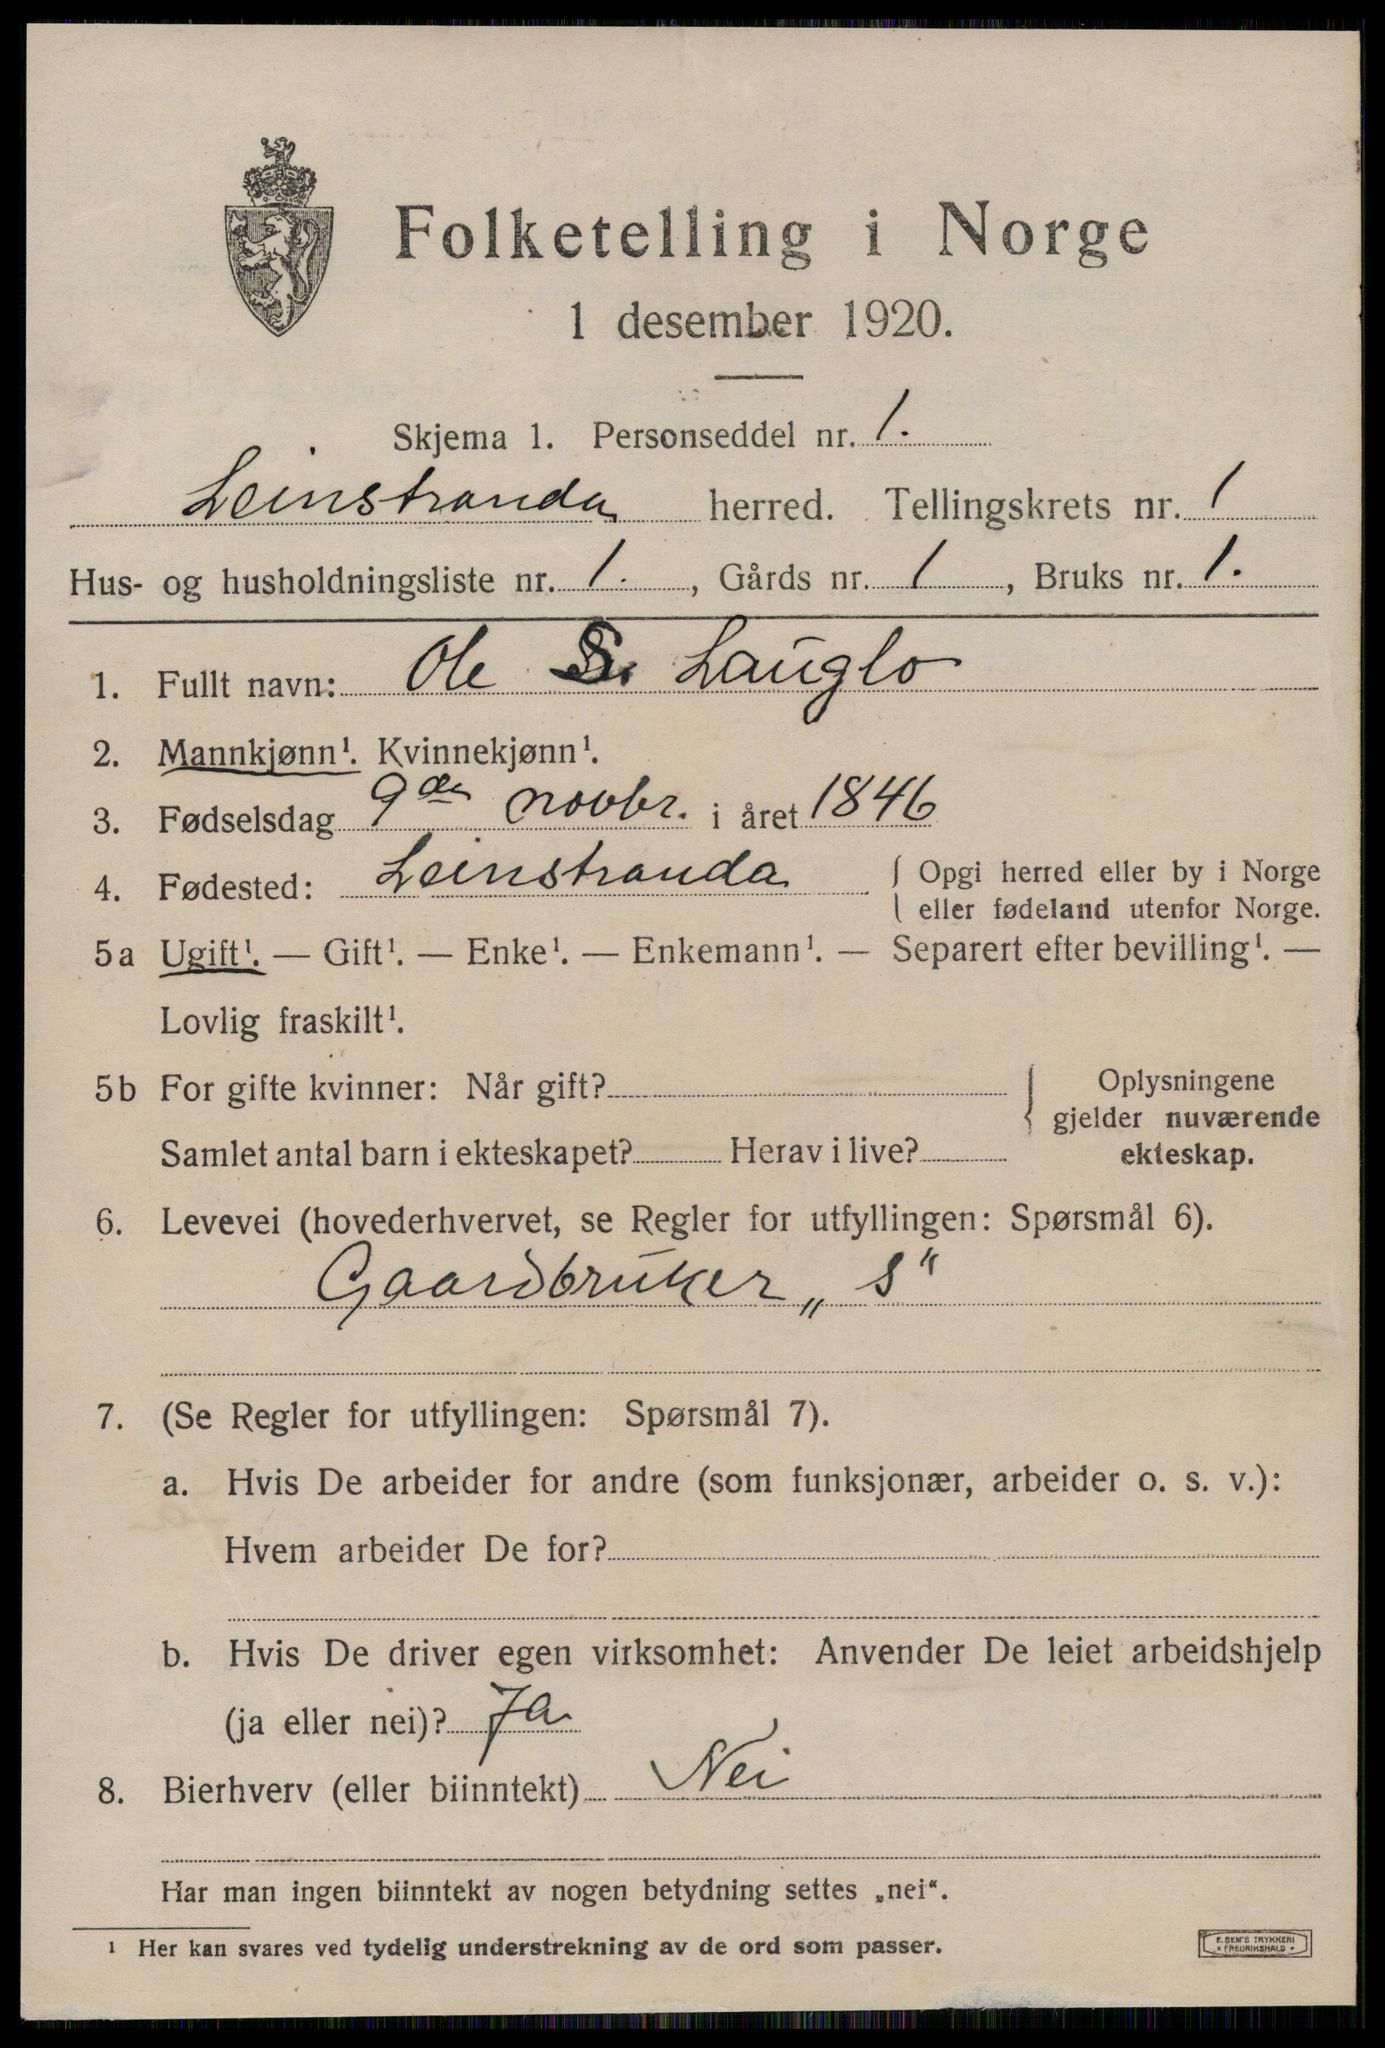 Folketelling i Norge
1 desember 1920.
Skjema 1. Personseddel nr. 1.
Leinstranda herred. Tellingskrets nr. 1
Hus- og husholdningsliste nr. 1. , Gårds nr. 1 , Bruks nr. 1.
1. Fullt navn: Ole S. Lauglo
2. Mannkjønn¹. Kvinnekjønn¹.
3. Fødselsdag 9de novbr. i året 1846
4. Fødested: Leinstranda { Opgi herred eller by i Norge
eller fødeland utenfor Norge.
5a Ugift¹. — Gift¹. — Enke¹. — Enkemann¹. — Separert efter bevilling¹. —
Lovlig fraskilt¹.
5b For gifte kvinner: Når gift? { Oplysningene
gjelder nuværende
Samlet antal barn i ekteskapet? Herav i live? ekteskap.
6. Levevei (hovederhvervet, se Regler for utfyllingen: Spørsmål 6).
Gaardbruker „s“
7. (Se Regler for utfyllingen: Spørsmål 7).
a. Hvis De arbeider for andre (som funksjonær, arbeider o. s. v.):
Hvem arbeider De for?
b. Hvis De driver egen virksomhet: Anvender De leiet arbeidshjelp
(ja eller nei)? Ja
8. Bierhverv (eller biinntekt) Nei
Har man ingen biinntekt av nogen betydning settes „nei“.
¹ Her kan svares ved tydelig understrekning av de ord som passer.
E. SEM'S TRYKKERI
• FREDRIKSHALD •